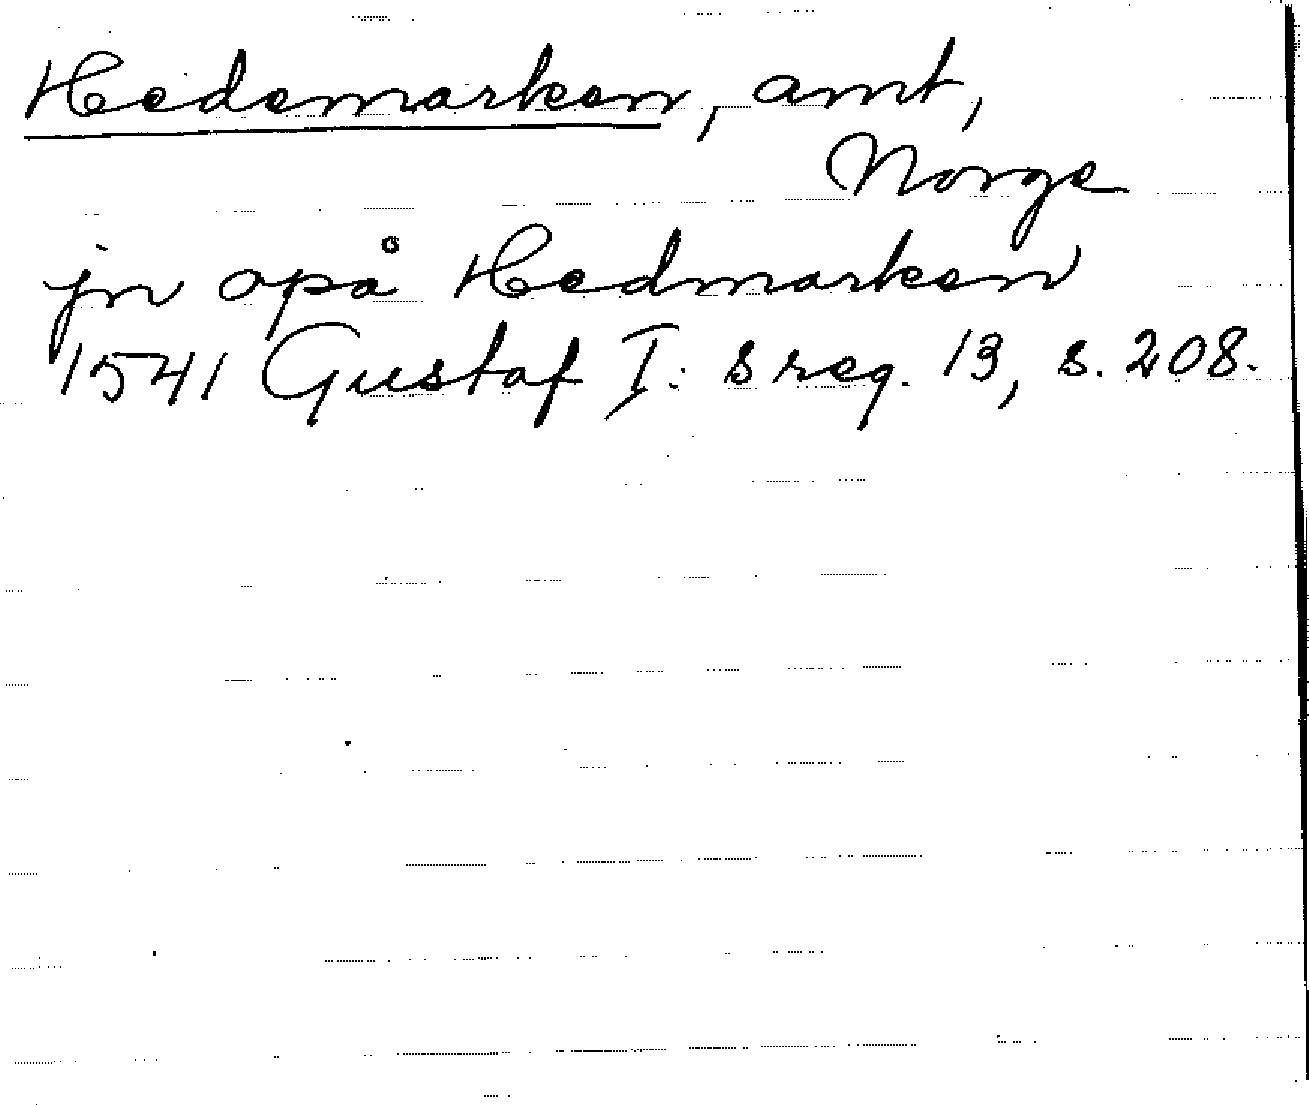 Hedemarken, amt,
Norge
jn opå Hedmarken
1541 Gustaf I:s reg. 13, s. 208.